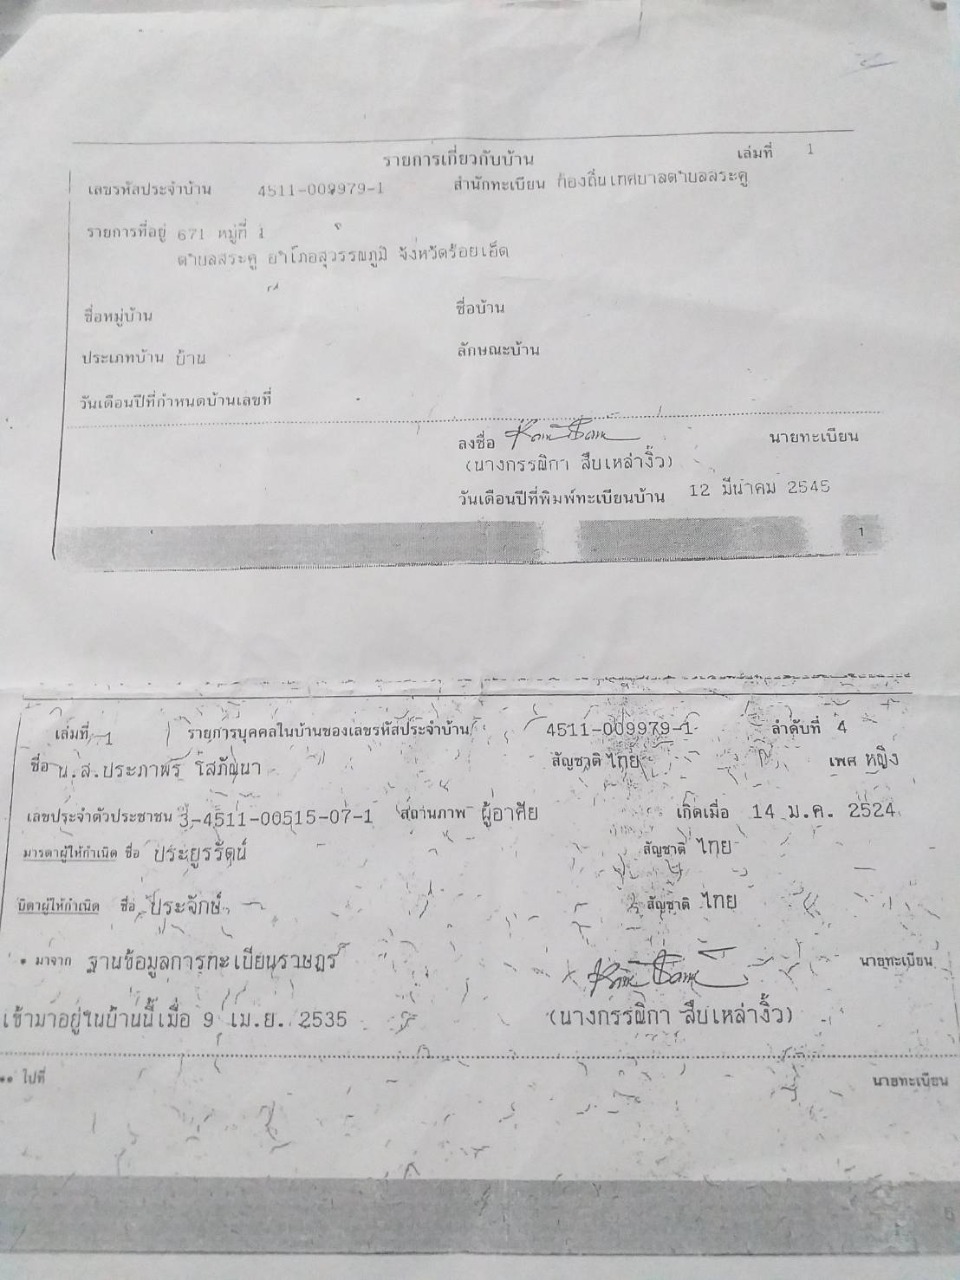 รายการเกี่ยวกับบ้าน เล่มที่ 1
เลขรหัสประจำบ้าน 4511-009979-1 สำนักทะเบียน ท้องถิ่นเทศบาลตำบลสระคู
รายการที่อยู่ 671 หมู่ที่ 1
ตำบลสระคู อำเภอสุวรรณภูมิ จังหวัดร้อยเอ็ด
ชื่อหมู่บ้าน ชื่อบ้าน
ประเภทบ้าน บ้าน ลักษณะบ้าน
วันเดือนปีที่กำหนดบ้านเลขที่
ลงชื่อ นายทะเบียน
(นางกรรณิกา สืบเหล่างิ้ว)
วันเดือนปีที่พิมพ์ทะเบียนบ้าน 12 มีนาคม 2545
1
เล่มที่ 1 รายการบุคคลในบ้านของเลขรหัสประจำบ้าน 4511-009979-1 ลำดับที่ 4
ชื่อ น.ส.ประภาพร โสภัณนา สัญชาติ ไทย เพศ หญิง
เลขประจำตัวประชาชน 3-4511-00515-07-1 สถานภาพ ผู้อาศัย เกิดเมื่อ 14 ม.ค. 2524
มารดาผู้ให้กำเนิด ชื่อ ประยูรรัตน์ สัญชาติ ไทย
บิดาผู้ให้กำเนิด ชื่อ ประจักษ์ สัญชาติ ไทย
* มาจาก ฐานข้อมูลการทะเบียนราษฎร นายทะเบียน
เข้ามาอยู่ในบ้านนี้เมื่อ 9 เม.ย. 2535 (นางกรรณิกา สืบเหล่างิ้ว)
** ไปที่ นายทะเบียน
5